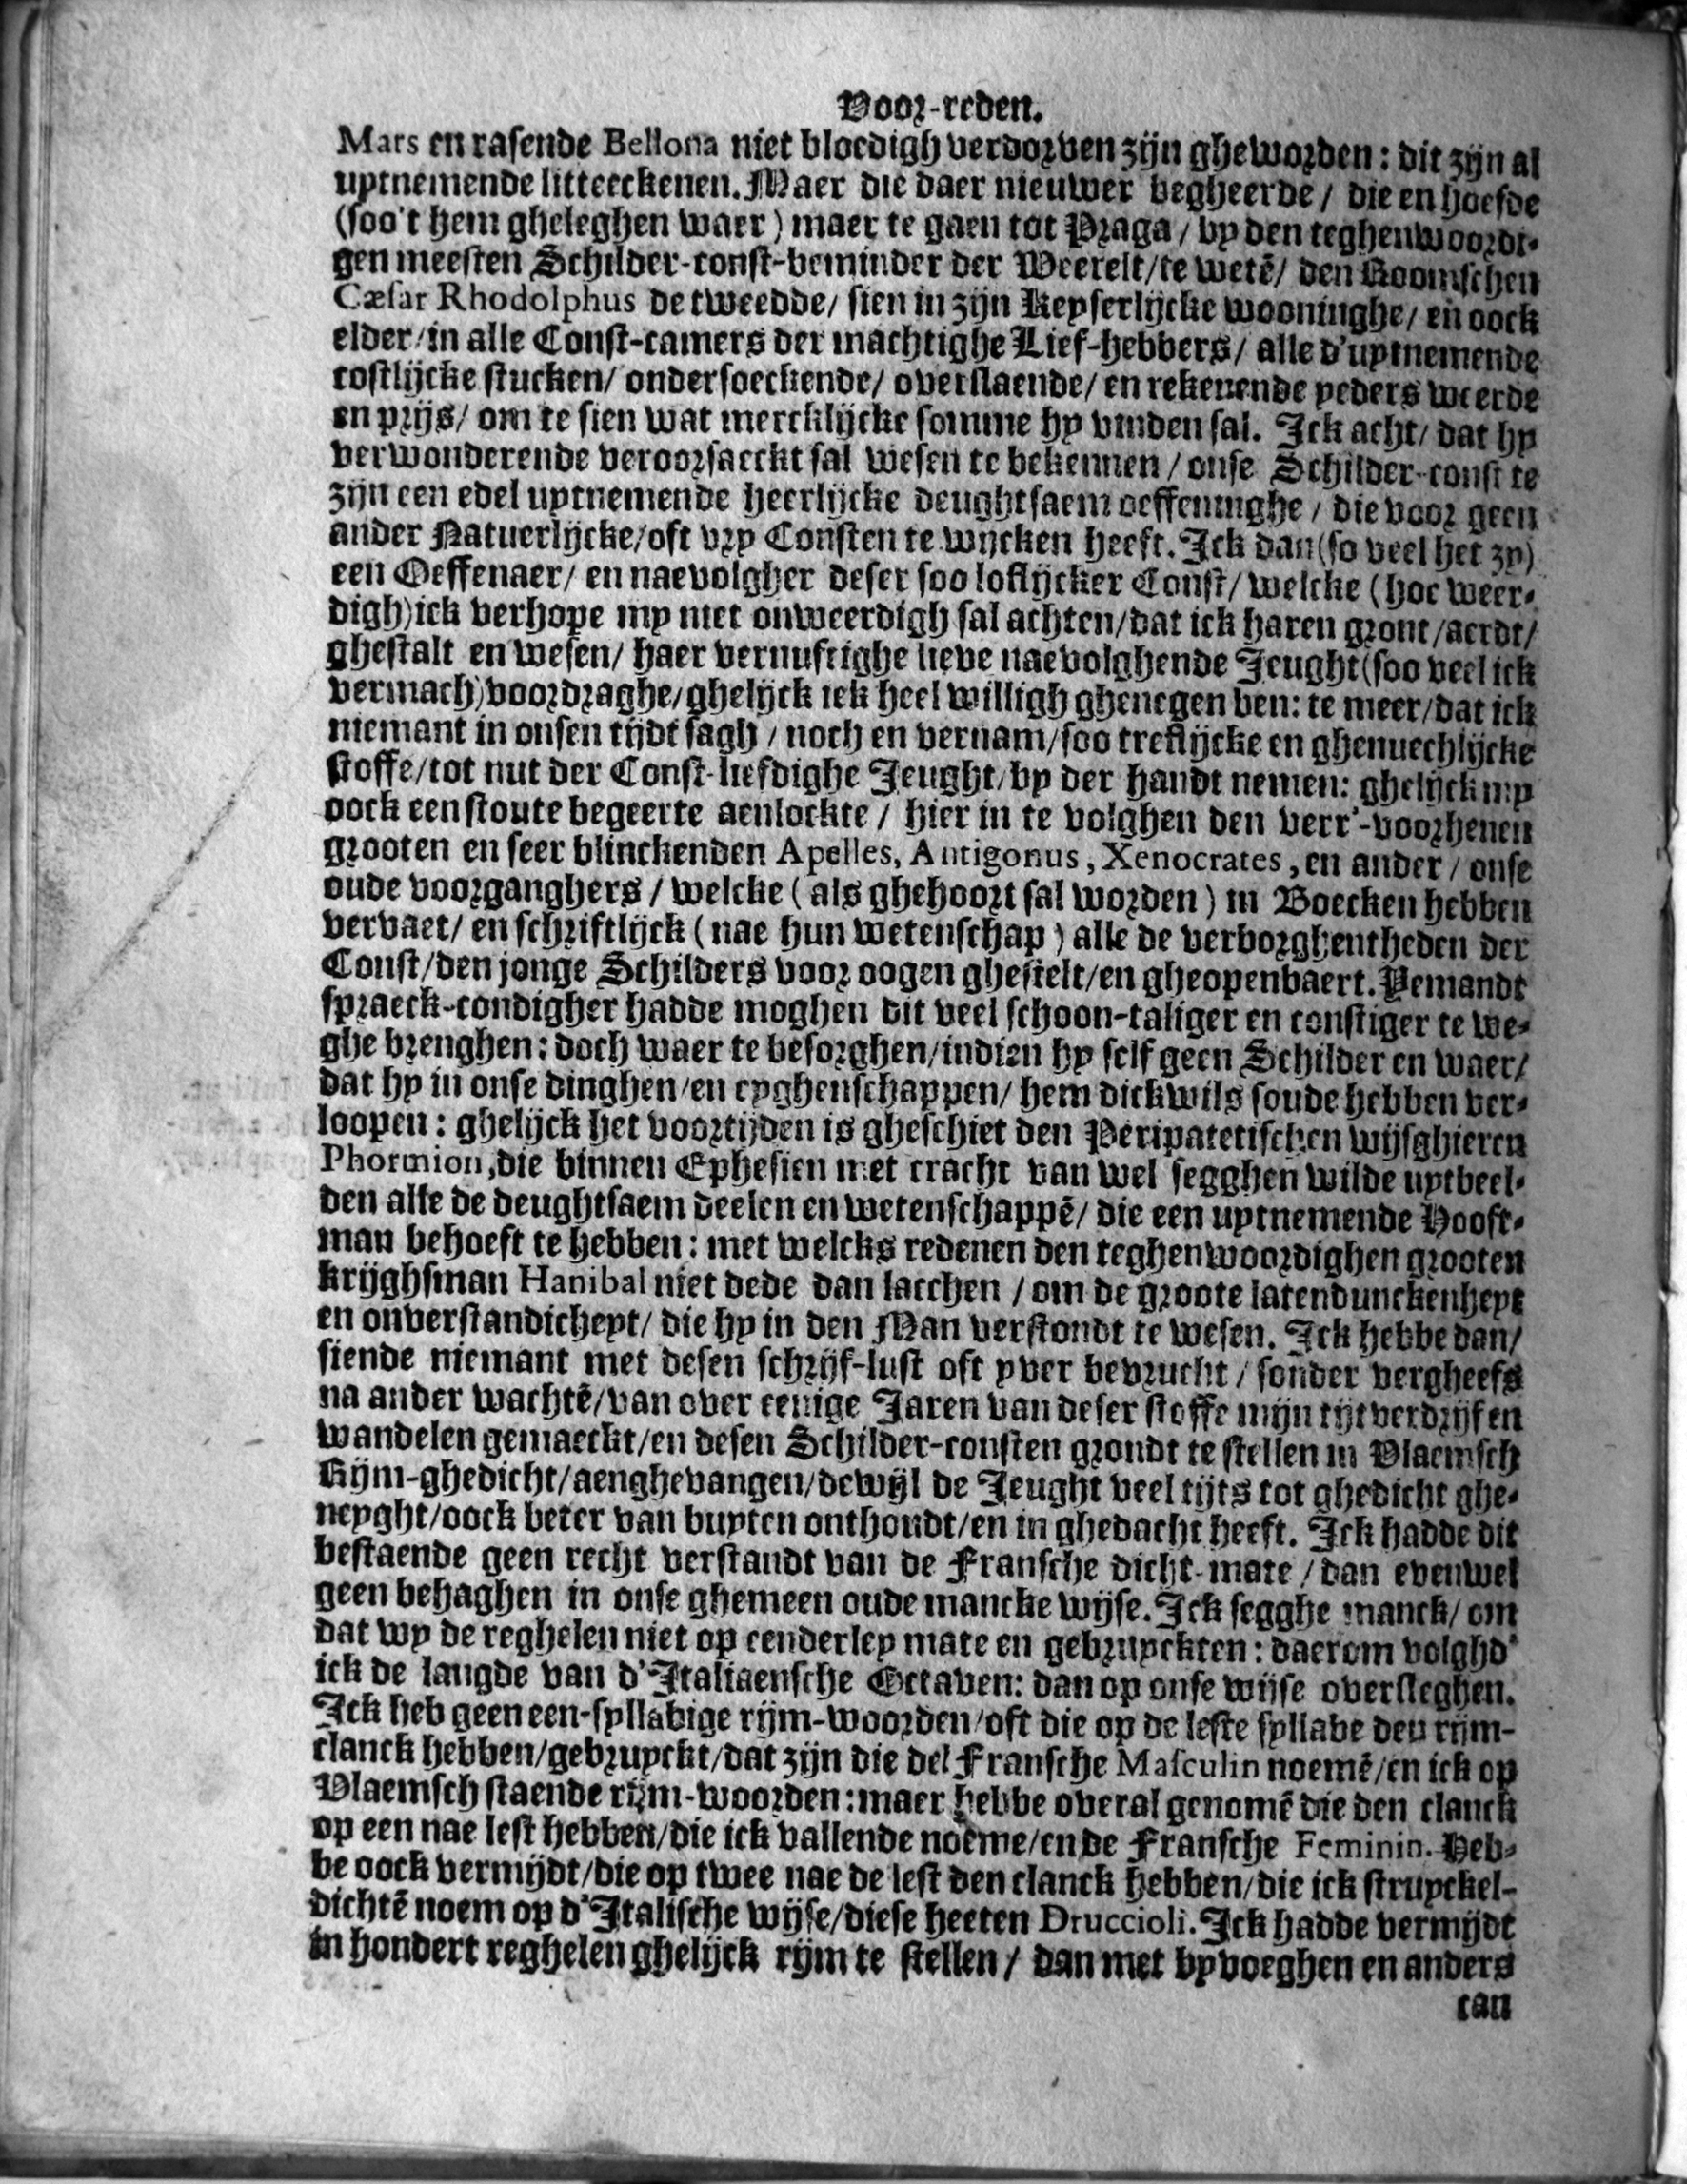 Voor-reden.
Mars en rasende Bellona niet bloedigh verdorven zijn gheworden: dit zijn al
uytnemende litteeckenen. Maer die daer nieuwer begheerde/ die en hoefde
(soo't hem gheleghen waer) maer te gaen tot Praga/ by den teghenwoordi-
gen meesten Schilder-const-beminder der Weerelt/te wetē/ den Roomschen
Cæsar Rhodolphus de tweedde/ sien in zijn Keyserlijcke wooninghe/ eñ oock
elder/in alle Const-camers der machtighe Lief-hebbers/ alle d'uytnemende
costlijcke stucken/ ondersoeckende/ overslaende/ en rekenende yeders weerde
en prijs/ om te sien wat mercklijcke somme hy vinden sal. Ick acht/ dat hy
verwonderende veroorsaeckt sal wesen te bekennen/ onse Schilder-const te
zijn een edel uytnemende heerlijcke deughtsaem oeffeninghe/ die voor geen
ander Natuerlijcke/oft vry Consten te wijcken heeft. Ick dan(so veel het zy)
een Oeffenaer/ en naevolgher deser soo loflijcker Const/ welcke (hoe weer-
digh)ick verhope my niet onweerdigh sal achten/dat ick haren gront/aerdt/
ghestalt en wesen/ haer vernuftighe lieve naevolghende Jeught(soo veel ick
vermach)voordraghe/ghelijck ick heel willigh ghenegen ben: te meer/dat ick
niemant in onsen tijdt sagh/ noch en vernam/soo treflijcke en ghenuechlijcke
stoffe/tot nut der Const-liefdighe Jeught/by der handt nemen: ghelijck my
oock een stoute begeerte aenlockte/ hier in te volghen den verr'-voorhenen
grooten en seer blinckenden Apelles, Antigonus, Xenocrates, en ander/ onse
oude voorganghers/ welcke (als ghehoort sal worden) in Boecken hebben
vervaet/ en schriftlijck (nae hun wetenschap) alle de verborghentheden der
Const/den jonge Schilders voor oogen ghestelt/en gheopenbaert. Yemandt
spraeck-condigher hadde moghen dit veel schoon-taliger en constiger te we-
ghe brenghen: doch waer te besorghen/indien hy self geen Schilder en waer/
dat hy in onse dinghen/en eyghenschappen/ hem dickwils soude hebben ver-
loopen: ghelijck het voortijden is gheschiet den Peripatetischen wijsghieren
Phormion, die binnen Ephesien met cracht van wel segghen wilde uytbeel-
den alle de deughtsaem deelen en wetenschappē/ die een uytnemende Hooft-
man behoeft te hebben: met welcks redenen den teghenwoordighen grooten
krijghsman Hanibal niet dede dan lacchen/ om de groote latendunckenheyt
en onverstandicheyt/ die hy in den Man verstondt te wesen. Ick hebbe dan/
siende niemant met desen schrijf-lust oft yver bevrucht/ sonder vergheefs
na ander wachtē/van over eenige Jaren van deser stoffe mijn tijtverdrijf en
wandelen gemaeckt/en desen Schilder-consten grondt te stellen in Vlaemsch
Rijm-ghedicht/aenghevangen/dewijl de Jeught veel tijts tot ghedicht ghe-
neyght/oock beter van buyten onthoudt/en in ghedacht heeft. Ick hadde dit
bestaende geen recht verstandt van de Fransche dicht-mate/ dan evenwel
geen behaghen in onse ghemeen oude mancke wijse. Ick segghe manck/ om
dat wy de reghelen niet op eenderley mate en gebruyckten: daerom volghd'
ick de langde van d'Italiaensche Octaven: dan op onse wijse oversleghen.
Ick heb geen een-syllabige rijm-woorden/oft die op de leste syllabe den rijm-
clanck hebben/gebruyckt/dat zijn die del Fransche Masculin noemē/en ick op
Vlaemsch staende rijm-woorden: maer hebbe overal genomē die den clanck
op een nae lest hebben/die ick vallende noeme/en de Fransche Feminin. Heb-
be oock vermijdt/die op twee nae de lest den clanck hebben/die ick struyckel-
dichtē noem op d'Italische wijse/diese heeten Druccioli. Ick hadde vermijdt
in hondert reghelen ghelijck rijm te stellen/ dan met byvoeghen en anders
can